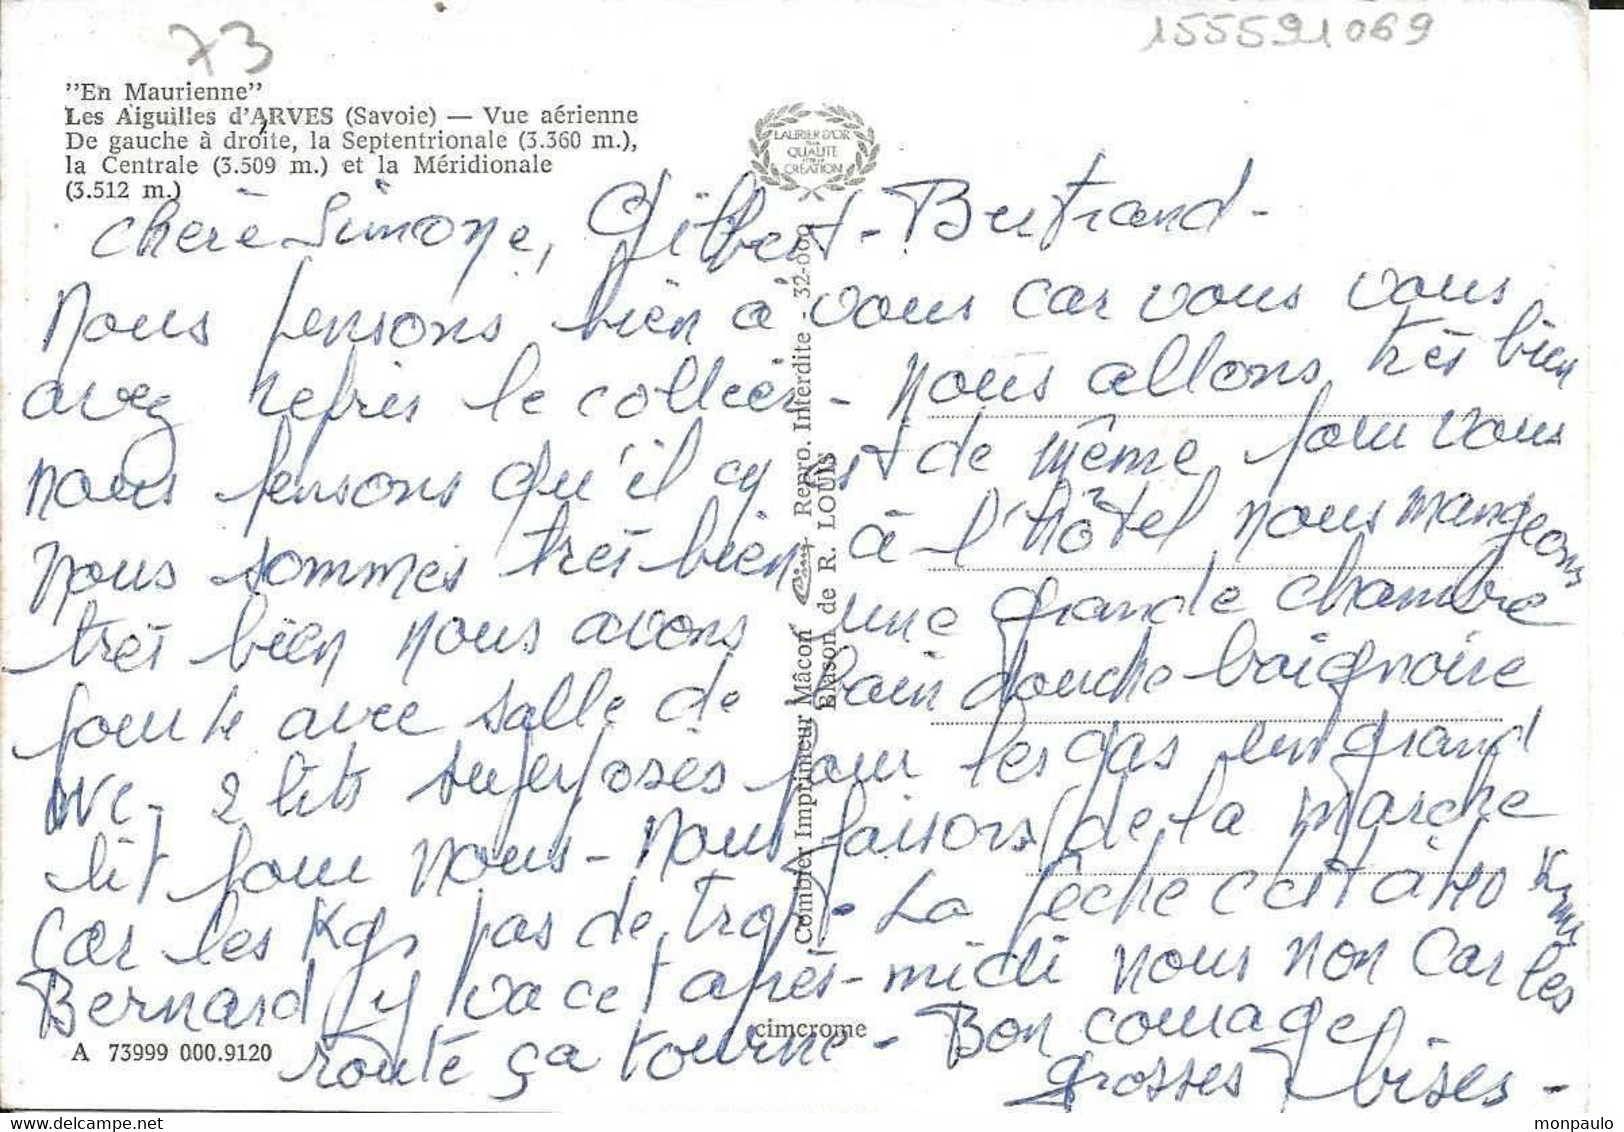 73
155591069
"En Maurienne"
Les Aiguilles d'ARVES (Savoie) — Vue aérienne
De gauche à droite, la Septentrionale (3.360 m.),
la Centrale (3.509 m.) et la Méridionale
(3.512 m.)
LAURIER D'OR
DE LA
QUALITÉ
ET DE LA
CRÉATION
Chère Simone, Gilbert - Bertrand -
Nous pensons bien à vous car vous vous
avez repris le collier - nous allons très bien
nous pensons qu'il en est de même pour vous
Nous sommes très bien à l'hôtel nous mangeons
très bien nous avons une grande chambre
avec salle de bain douche baignoire
WC - 2 lits superposés pour les gas un grand
lit pour nous - nous faisons de la marche
car les Kgs pas de trop - La pêche c'est à 40 Kms
Bernard y va cet après-midi nous non car les
route ça tourne - Bon courage
grosses bises -
Combier Imprimeur Mâcon Cim Repro. Interdite . 32-000
Blason de R. LOUIS
A 73999 000.9120
cimcrome
monpaulo